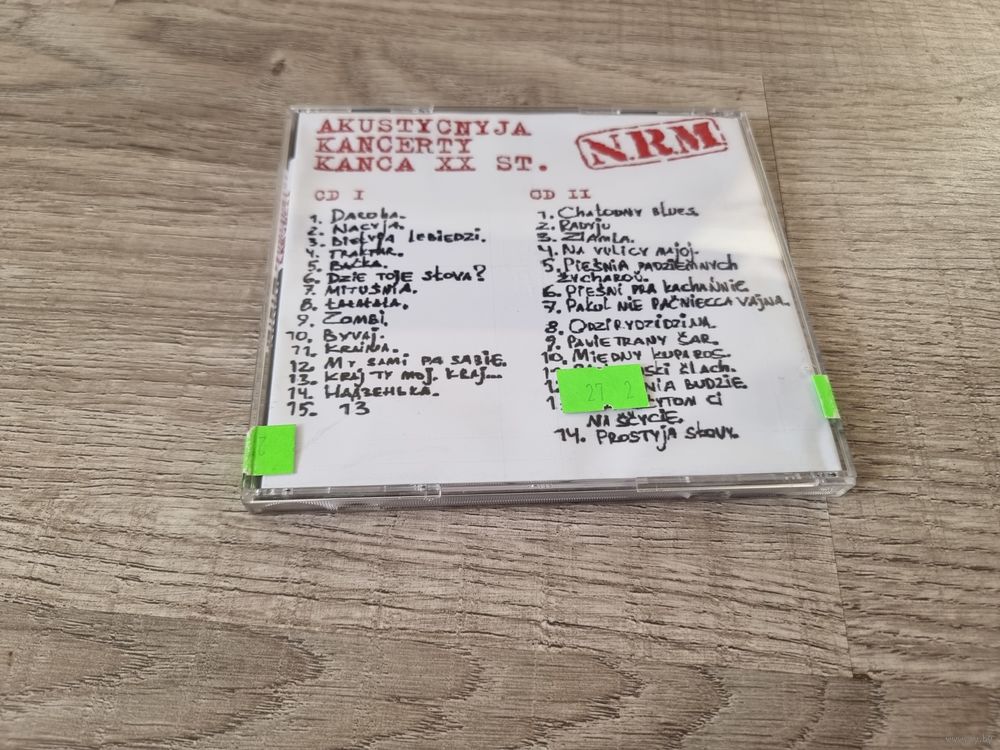 AKUSTYCNYJA
KANCERTY
KANCA XX ST.
N.R.M
CD I
1. DAROHA.
2. NACYJA.
3. BIEŁYJA LEBIEDZI.
4. TRAKTAR.
5. BAĆKA.
6. DZIE TOJE SŁOVA?
7. MITUSNIA.
8. ŁAŁAŁAŁA.
9. ZOMBI.
10. BYVAJ.
11. KRAINA.
12. MY SAMI PA SABIE.
13. KRAJ TY MOJ, KRAJ...
14. НАДЗЕНЬКА.
15. 13
CD II
1. CHAŁODNY BLUES.
2. RADYJU
3. ZŁAMŁA.
4. NA VULICY MAJOJ.
5. PIEŚNIA PADZIEMNYCH
ŽYCHAROŬ.
6. PIEŚNI PRA KACHAŃNIE
7. PAKUL NIE PAČNIECCA VAJNA.
8. ODZIRYDZIDZINA.
9. PAVIETRANY ŠAR.
10. MIEDNY KUPAROS.
SKI ŠLACH.
NIA BUDZIE.
YTOM CI
NA ŠČYCIE.
14. PROSTYJA SŁOVY.
27 2
2